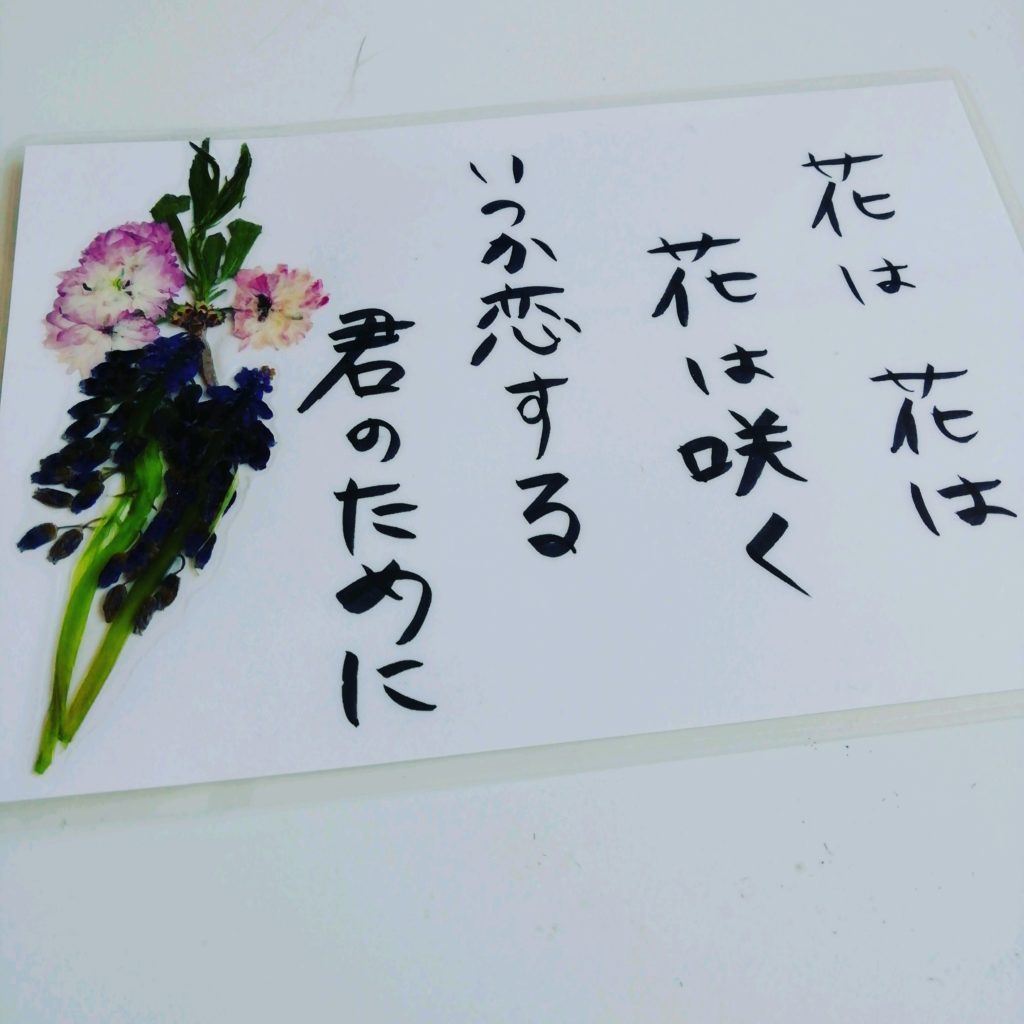 花は 花は
花は咲く
いつか恋する
君のために